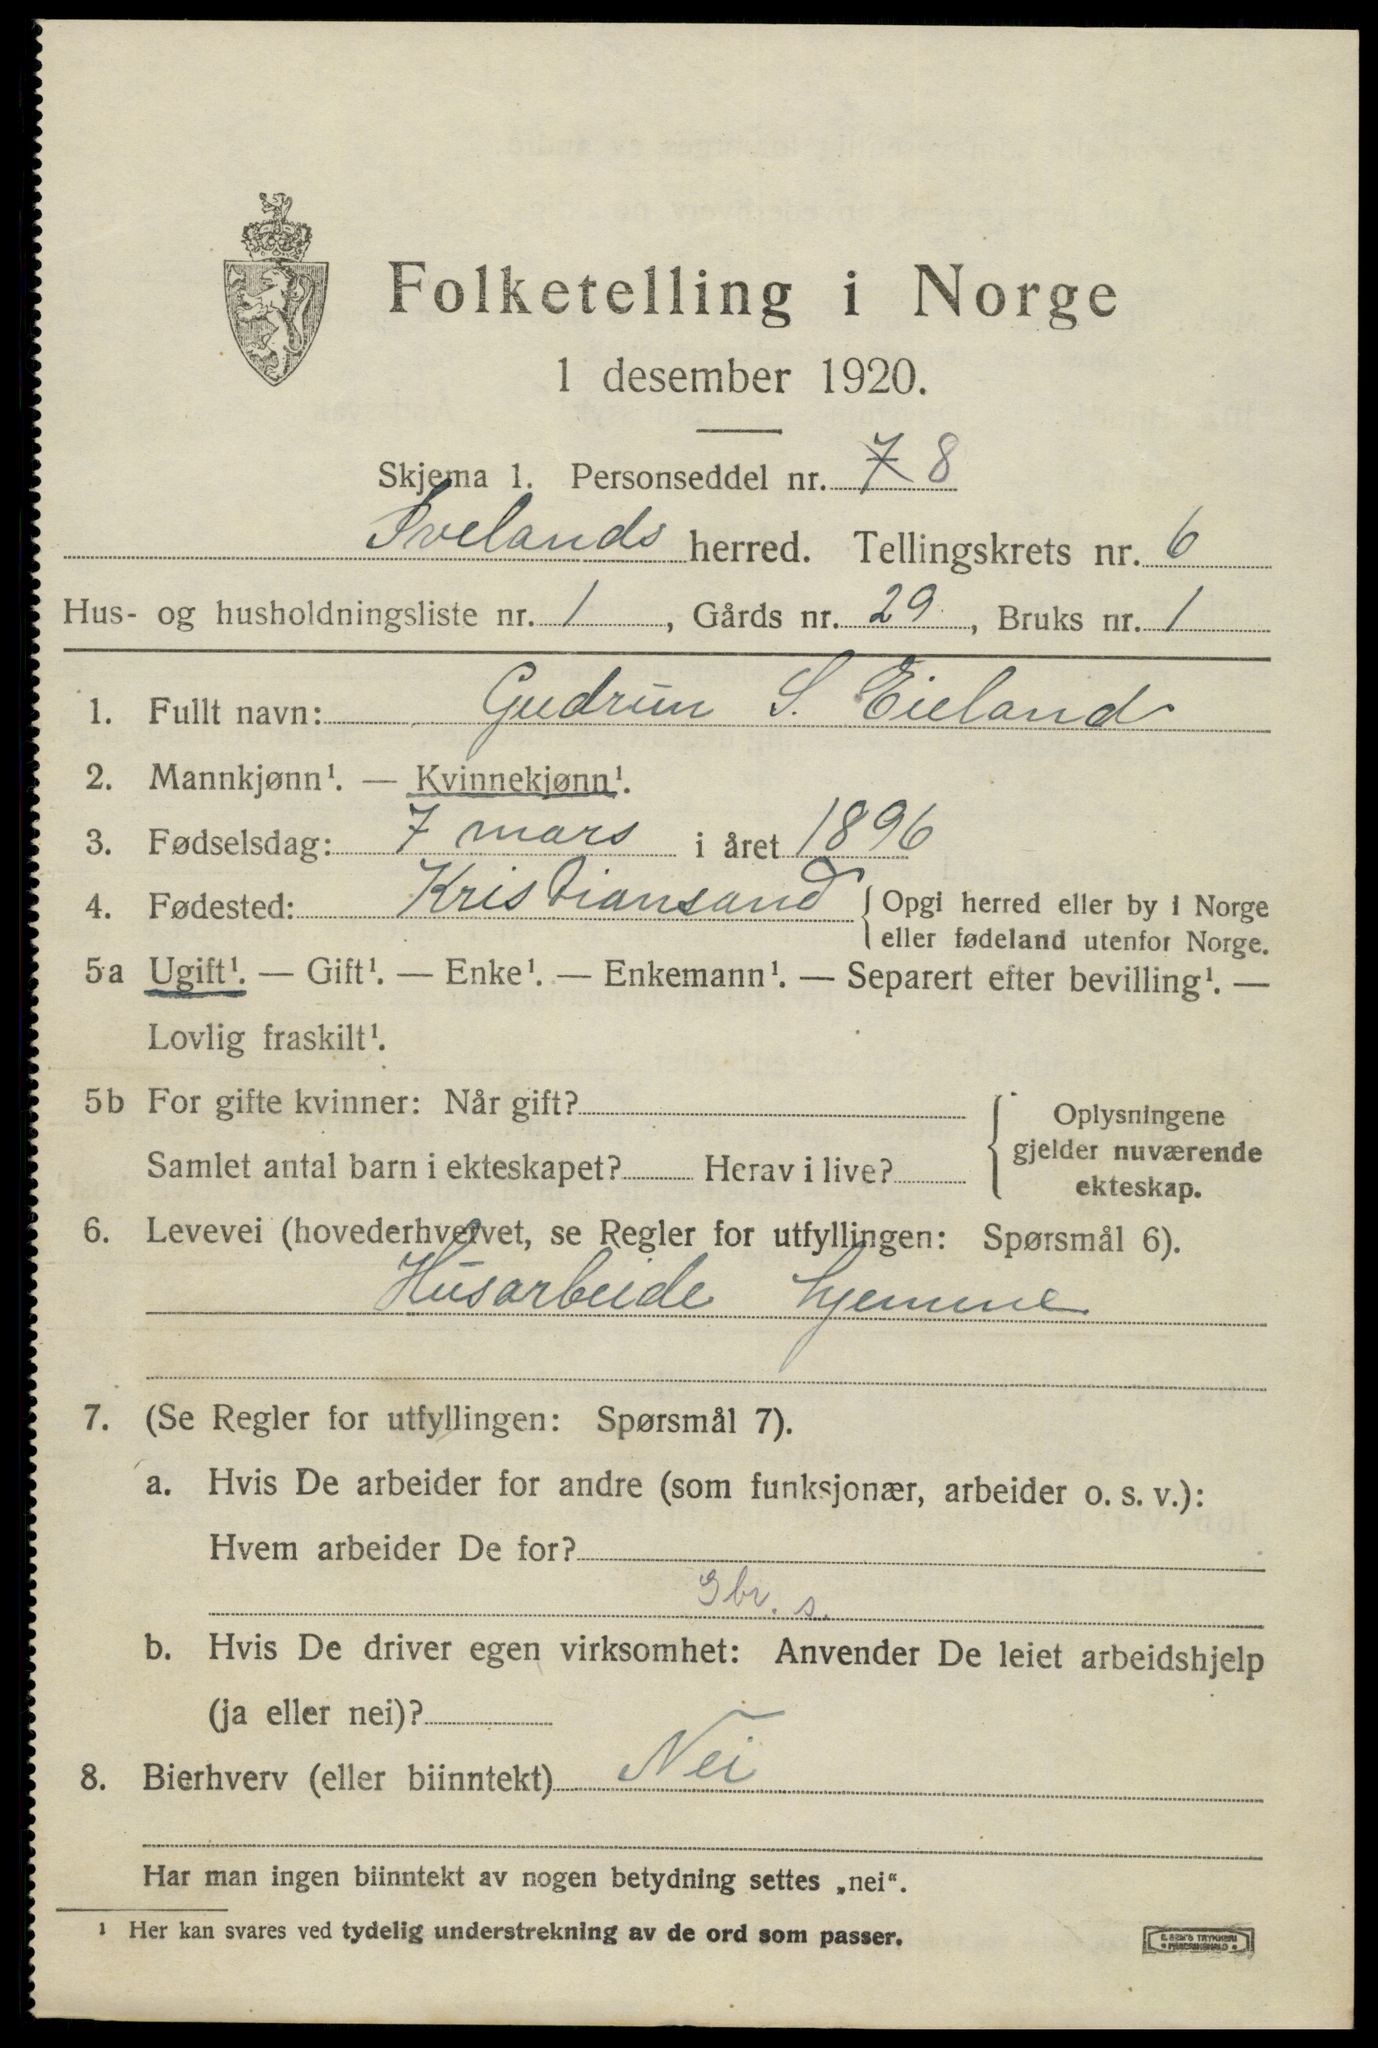 Folketelling i Norge
1 desember 1920.
Skjema 1. Personseddel nr. 7 8
Ivelands herred. Tellingskrets nr. 6
Hus- og husholdningsliste nr. 1, Gårds nr. 29, Bruks nr. 1
1. Fullt navn: Gudrun S. Eieland
2. Mannkjønn¹. — Kvinnekjønn¹.
3. Fødselsdag: 7 mars i året 1896
4. Fødested: Kristiansand { Opgi herred eller by i Norge
eller fødeland utenfor Norge.
5a Ugift¹. — Gift¹. — Enke¹. — Enkemann¹. — Separert efter bevilling¹. —
Lovlig fraskilt¹.
5b For gifte kvinner: Når gift?
Samlet antal barn i ekteskapet? Herav i live?
{ Oplysningene
gjelder nuværende
ekteskap.
6. Levevei (hovederhvervet, se Regler for utfyllingen: Spørsmål 6).
Husarbeide hjemme
7. (Se Regler for utfyllingen: Spørsmål 7).
a. Hvis De arbeider for andre (som funksjonær, arbeider o. s. v.):
Hvem arbeider De for?
Gbr. s.
b. Hvis De driver egen virksomhet: Anvender De leiet arbeidshjelp
(ja eller nei)?
8. Bierhverv (eller biinntekt) Nei
Har man ingen biinntekt av nogen betydning settes „nei“.
¹ Her kan svares ved tydelig understrekning av de ord som passer.